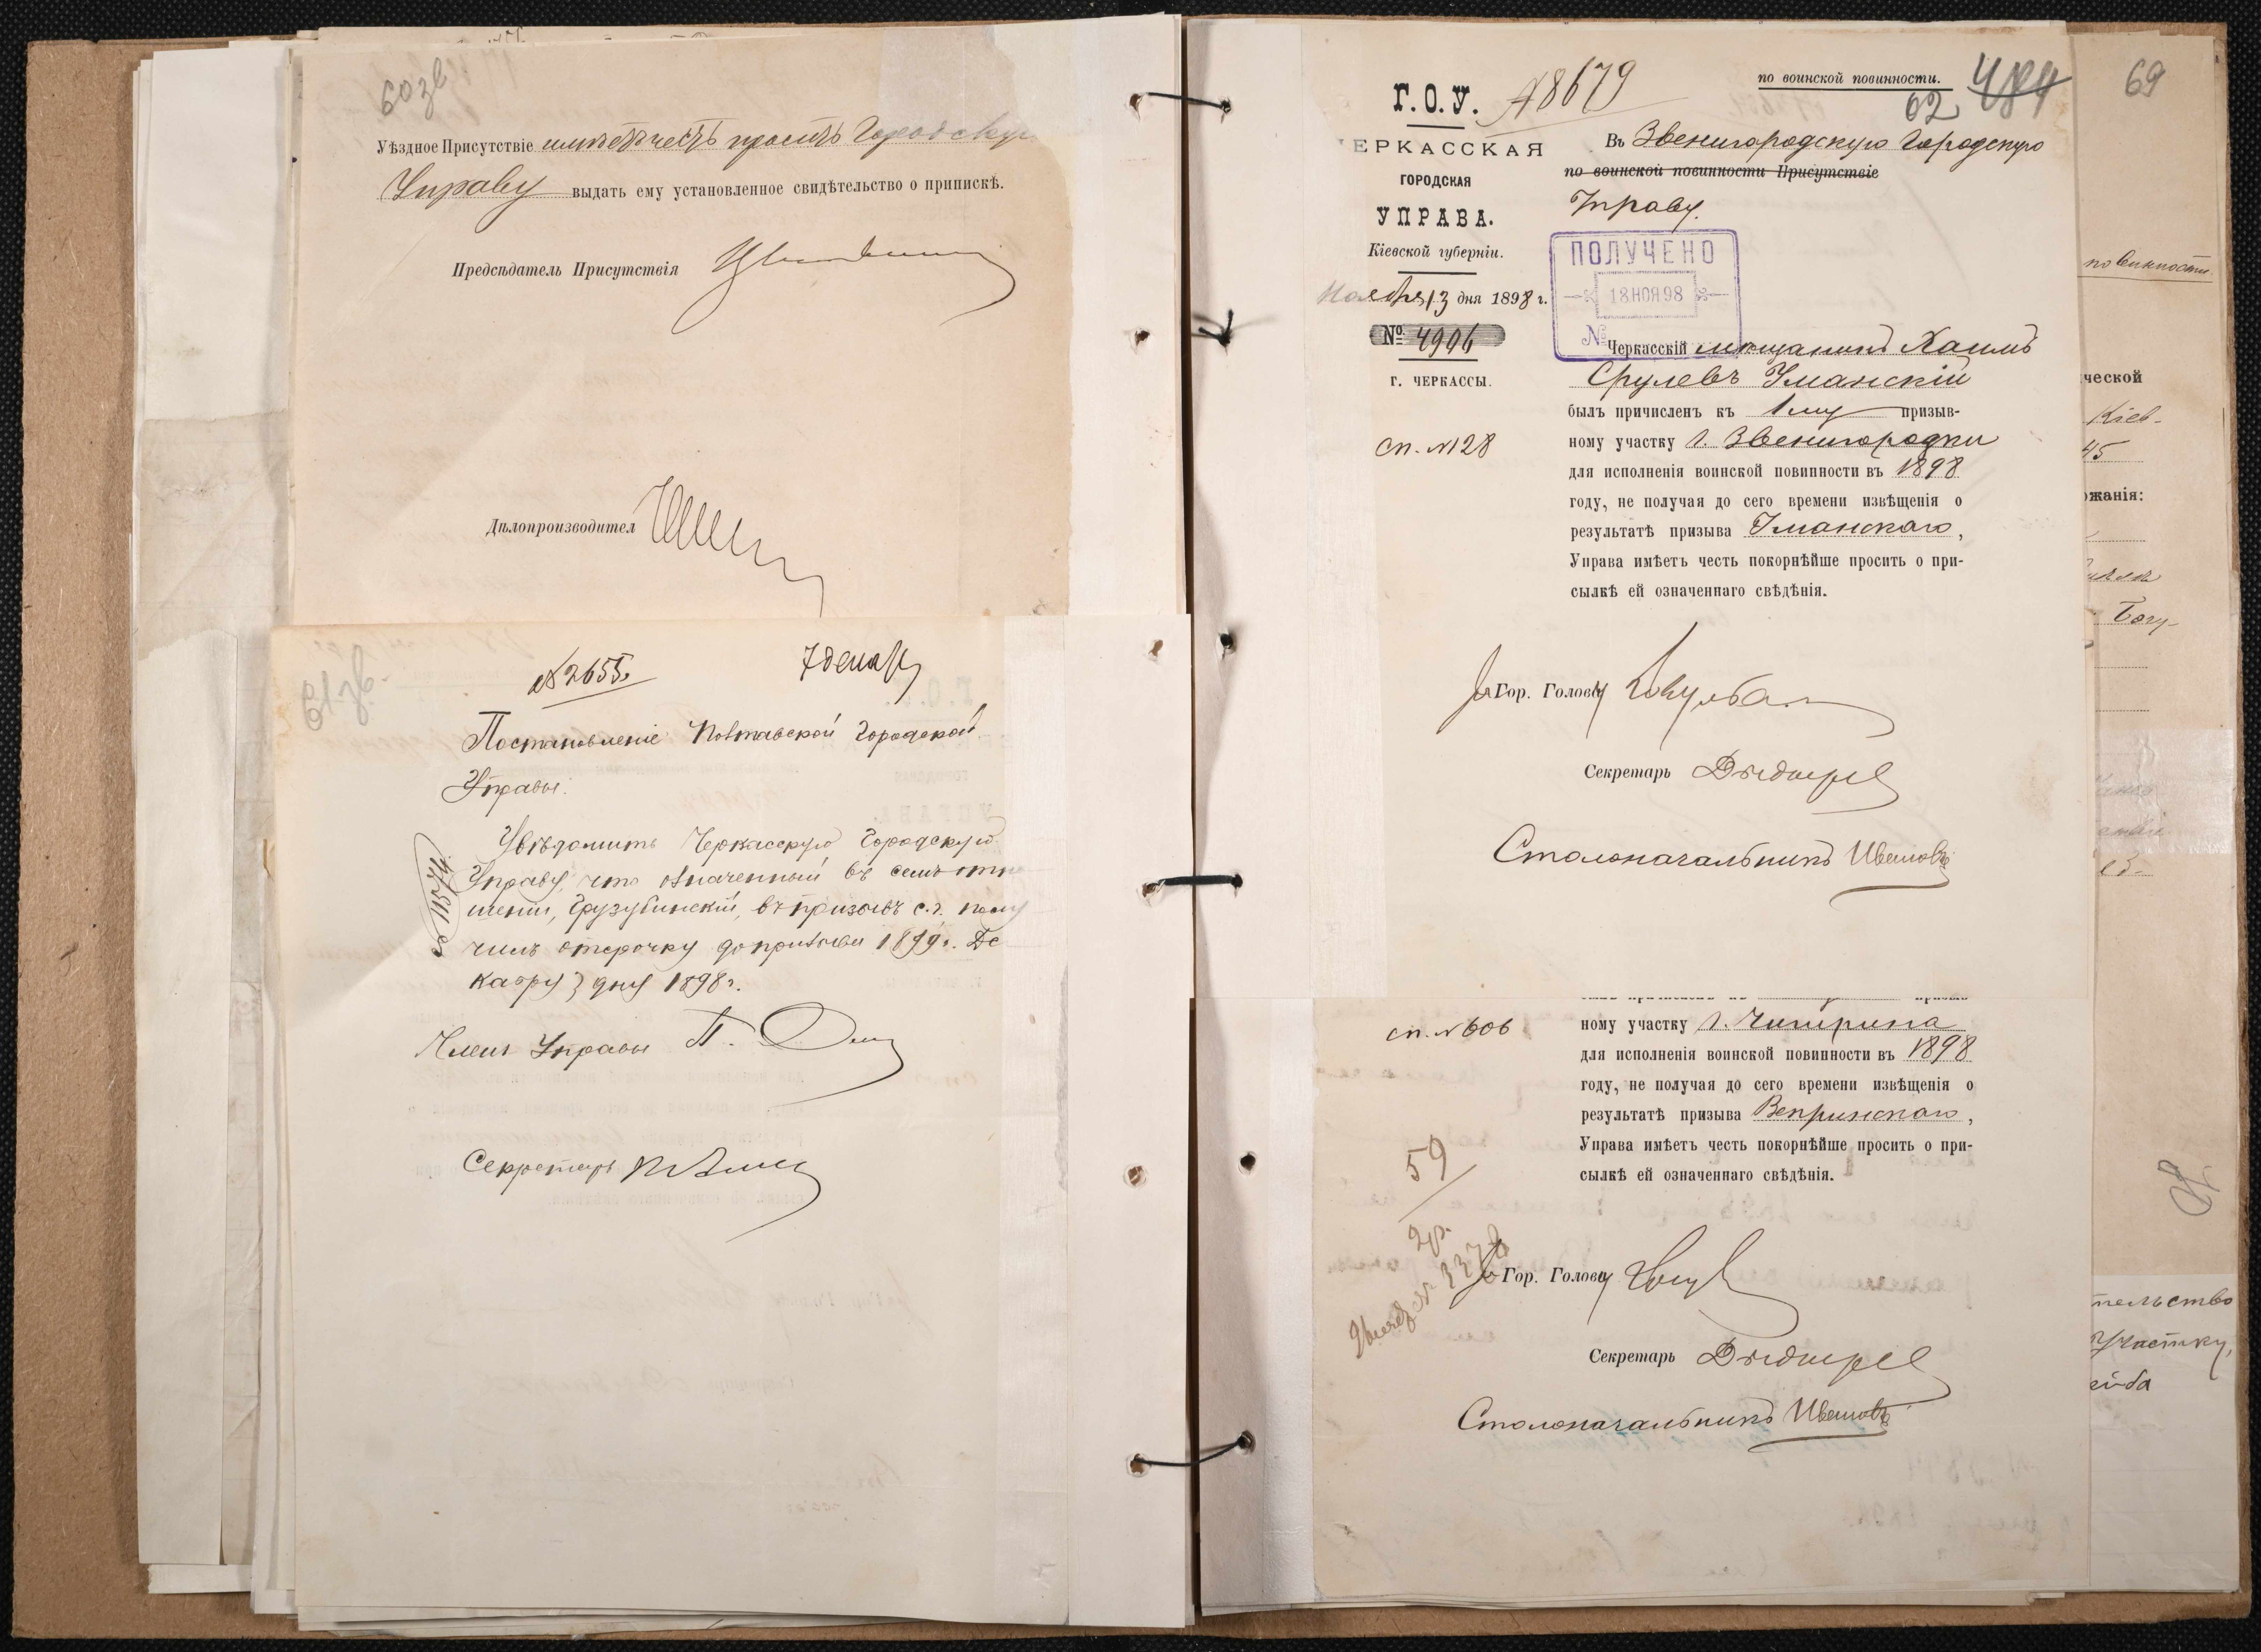 60 зв
Уѣздное Присутствіе имѣетъ честь проситъ Городскую
Управу выдать ему установленное свидѣтельство о припискѣ.
Предсѣдатель Присутствія
Дѣлопроизводител
61 зв.
№ 2655.
7 декабр
Постановленіе Полтавской Городской
Управы.
Увѣдомить Черкасскую Городскую
Управу, что означенный въ семъ отно
шеніи, Грузубинскій, въ призывъ с.г. полу
чилъ отсрочку до призыва 1899 г. Де
кабру 3 дну 1898 г.
№ 11574
Членъ Управы П.
Секретарь
по воинской повинности.
484
62
Г. О. У. № 8679
ЕРКАССКАЯ
ГОРОДСКАЯ
УПРАВА.
Кіевской губерніи.
Ноября 13 дня 1898 г.
№ 4996
г. ЧЕРКАССЫ.
сп. № 128
Въ Звенигородскую Городскую
по воинской повинности Присутствіе
Управу.
ПОЛУЧЕНО
18 НОЯ 98
№
Черкасскій мѣщанинъ Хаимъ
Срулевъ Уманскій
былъ причисленъ къ 1му призыв-
ному участку г. Звенигородки
для исполненія воинской повинности въ 1898
году, не получая до сего времени извѣщенія о
результатѣ призыва Уманскаго,
Управа имѣетъ честь покорнѣйше просить о при-
сылкѣ ей означеннаго свѣдѣнія.
За Гор. Голову
Секретарь
Столоначальникъ Ивановъ
сп. № 606
ному участку г. Чигирина
для исполненія воинской повинности въ 1898
году, не получая до сего времени извѣщенія о
результатѣ призыва Вепринскаго,
Управа имѣетъ честь покорнѣйше просить о при-
сылкѣ ей означеннаго свѣдѣнія.
59
2р.
№ 3378
За Гор. Голову
Секретарь
Столоначальникъ Ивановъ
69
повинности
ческой
Кіев-
45
жанія:
Богу-
тельство
участку,